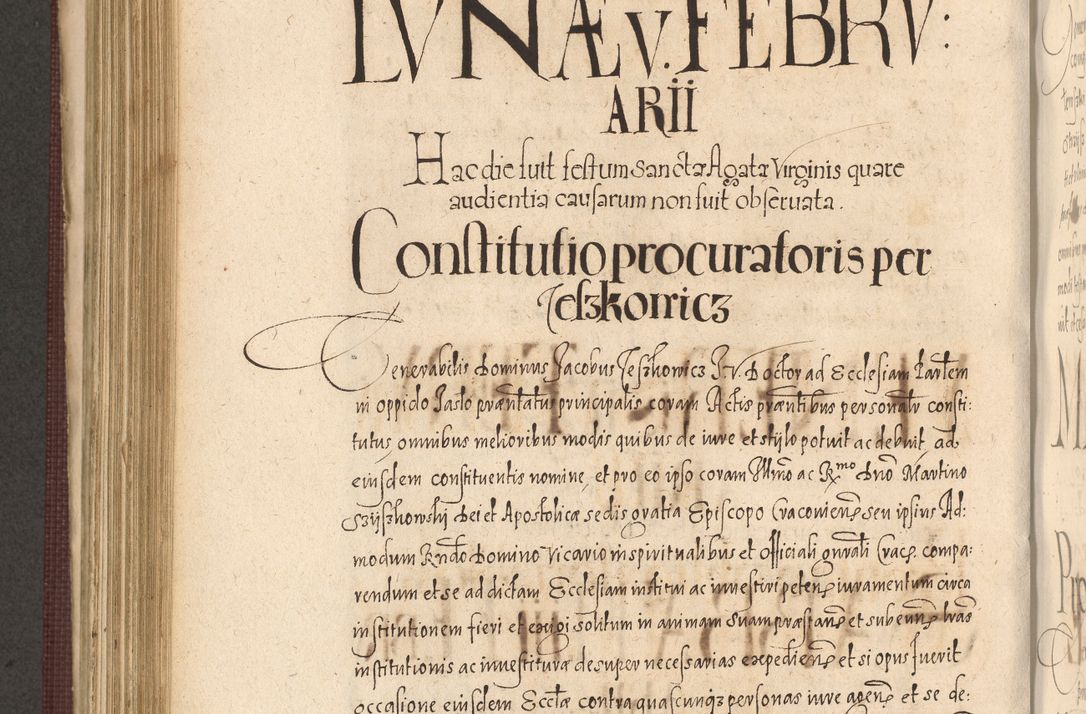 LVNÆ V. FEBRV:
ARII
Hac die fuit festum Sanctæ Agatæ Virginis quare
audientia causarum non fuit obseruata.
Constitutio procuratoris per
Jeszkowicz
Venerabilis Dominus Jacobus Jeszkowicz J. V. Doctor ad Ecclesiam Parlem
in oppido Jaslo præntatus principalis coram Actis præntibus personalr consti:
tutus omnibus melioribus modis quibus de iure et stÿlo potuit ac debuit ad
eiusdem constituentis nomine, et pro eo ipso coram Illmo ac Rmo Dno Martino
Szÿszkowskÿ Dei et Apostolicæ sedis gratia Episcopo Cracouien seu ipsius Ad:
modum Rndo Domino Vicario in spiritualibus et Officiali gnrali Crac compa:
rendum et se ad dictam Ecclesiam institui ac inuestiri peten iuramentum circa
institutionem fieri et exigi solitum in animam Suam præstan et subeun lras
institutionis ac inuestituræ desuper necessarias expedien et si opus fuerit
occasione eiusdem Eccliæ contra quascunqz personas iure agen et se de: